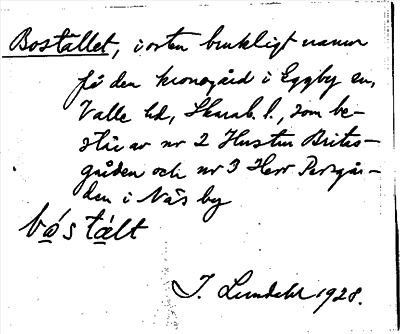 Boställlet, i orten brukligt namn
på den kronogård i Eggby sn,
Valle hd, Skarab. l., som be-
står av nr 2 Hustru Brites-
gården och nr 3 Herr Persgår-
den i Näs by
bós tált
I. Lundahl 1928.